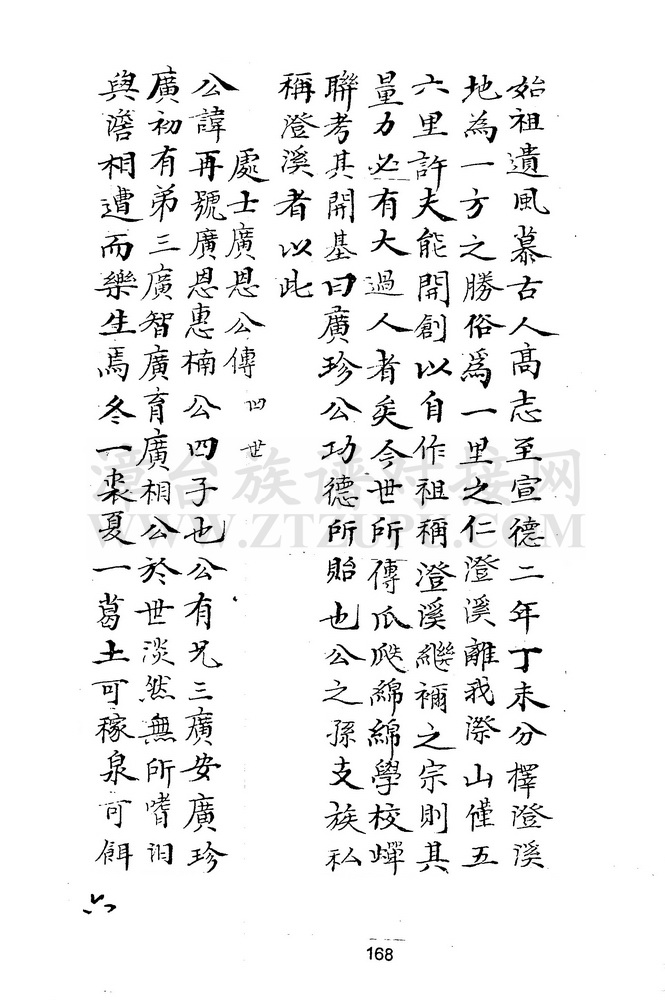 始祖遺風慕古人高志至宣德二年丁未分擇澄溪
地為一方之勝俗為一里之仁澄溪離我漈山僅五
六里許夫能開創以自作祖稱澄溪繼禰之宗則其
量力必有大過人者矣今世所傳瓜瓞綿綿學校蟬
聯考其開基曰廣珍公功德所貽也公之孫支族私
稱澄溪者以此
處士廣恩公傳 四世
公諱再號廣恩惠楠公四子也公有兄三廣安廣珍
廣初有弟三廣智廣育廣相公於世淡然無所嗜泊
與澹相遭而樂生焉冬一裘夏一葛土可稼泉可餌
六
168
漳台族谱对接网
WWW.ZTZUPU.COM